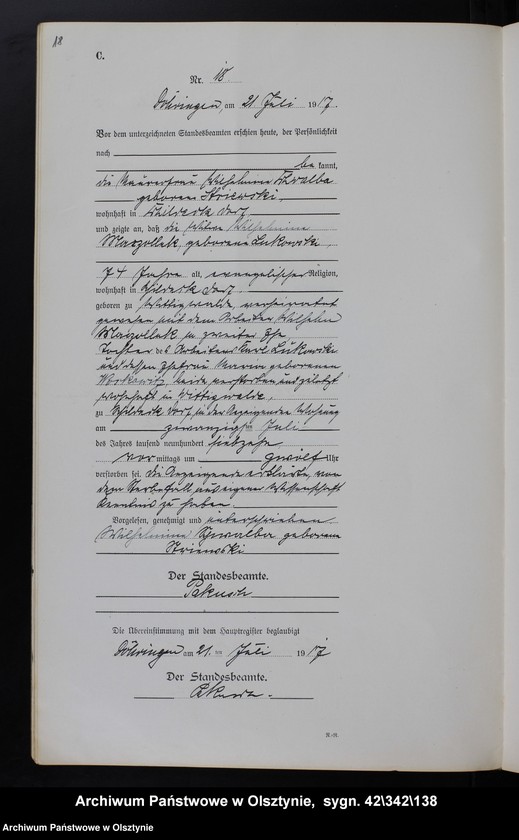 18
C.
Nr. 18.
Döhringen, am 21 Juli 1917.
Vor dem unterzeichneten Standesbeamten erschien heute, der Persönlichkeit
nach
be kannt,
die Maurerfrau Wilhelmine
geborene Striewski
wohnhaft in Dorf
und zeigte an, daß die Witwe Wilhelmine
Maczollek, geborene Lukowski,
74 Jahre alt, evangelischer Religion,
wohnhaft in Schildeck Dorf
geboren zu Wittigwalde, verheiratet
gewesen mit dem Arbeiter Wilhelm
Maczollek in zweiter Ehe
Tochter des Arbeiters Karl Lukowski
und dessen Ehefrau Maria geborenen
beide verstorben und zuletzt
wohnhaft in Wittigwalde,
zu Schildeck Dorf, in der Anzeigenden Wohnung
am zwanzigsten Juli
des Jahres tausend neunhundert siebzehn
vor mittags um zwölf Uhr
verstorben sei. Die Anzeigende erklärte, von
dem Sterbefall aus eigener Wissenschaft
Kenntnis zu haben.
Vorgelesen, genehmigt und unterschrieben
Wilhelmine Schwalba geborene
Striewski
Der Standesbeamte.
Die Übereinstimmung mit dem Hauptregister beglaubigt
Döhringen am 21. ten Juli 1917
Der Standesbeamte.
Archiwum Państwowe w Olsztynie, sygn. 42\342\138
Archiwum Państwowe w Olsztynie